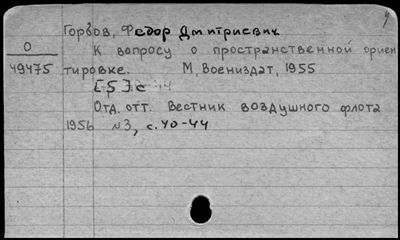 Горбов, Федор Дмитриевич
О
49475
К вопросу о пространственной ориен
тировке. М, Воениздат, 1955
[5] с
Отд. отт. Вестник воздушного флота
1956 №3, с. 40-44